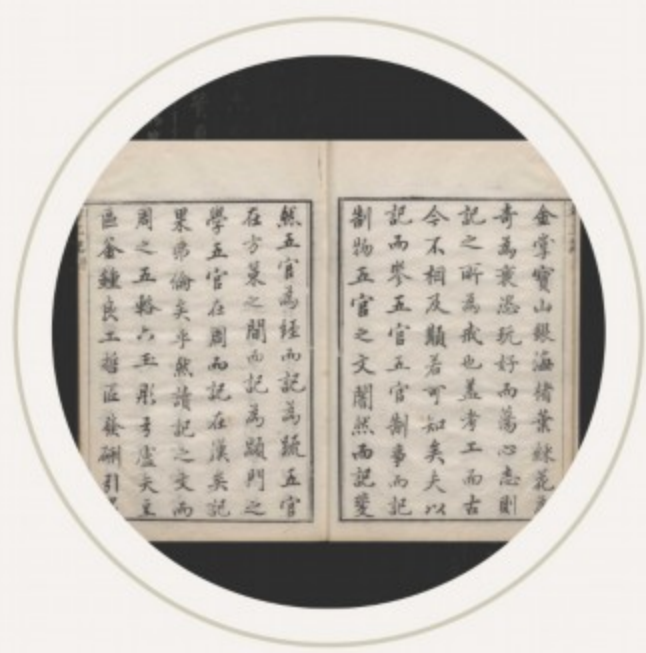 金掌寶山銀海楮葉綵花
奇為衺恣玩好而蕩心志則
記之所為戒也盖考工而古
今不相及顯若可知矣夫以
記而參五官五官制事而記
制物五官之文闇然而記斐
然五官為經而記為疏五官
在方策之間而記為顓門之
學五官在周而記在漢矣記
果弗倫矣乎然讀記之文而
周之五輅六玉彤弓盧矢豆
區釜鍾良工哲匠發硎引